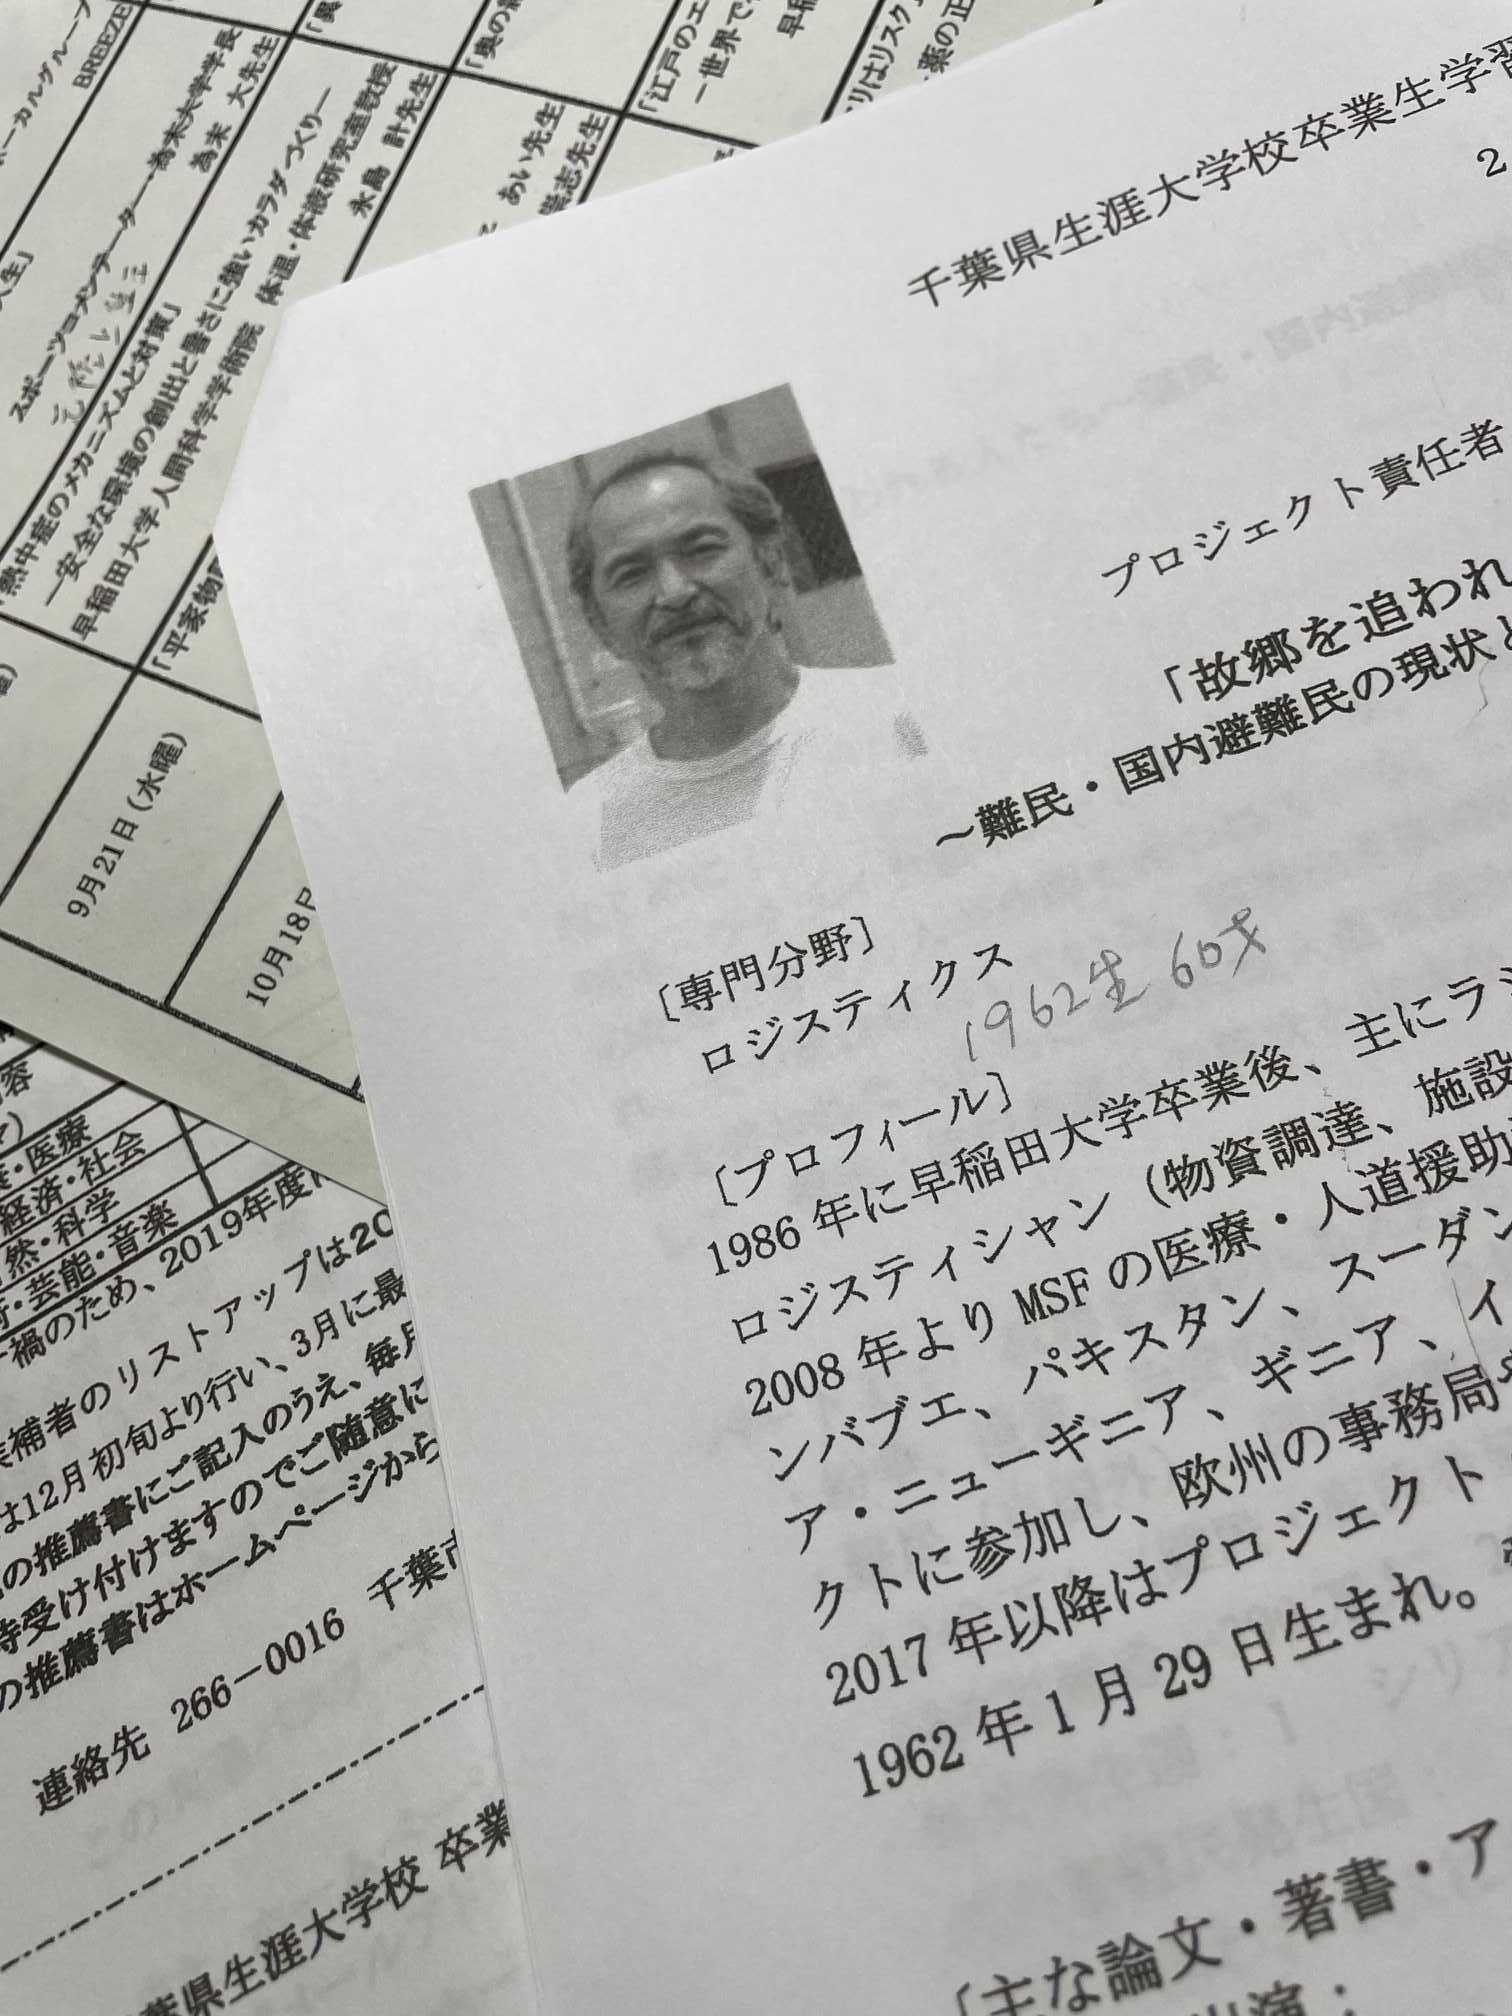 千葉県生涯大学校卒業生学習
2
プロジェクト責任者
「故郷を追われ
～難民・国内避難民の現状と
〔専門分野〕
ロジスティクス
1962生 60才
〔プロフィール〕
1986 年に早稲田大学卒業後、主にラジ
ロジスティシャン（物資調達、施設
2008 年より MSF の医療・人道援助
ンバブエ、パキスタン、スーダン
ア・ニューギニア、ギニア、イ
クトに参加し、欧州の事務局
2017 年以降はプロジェクト
1962 年 1 月 29 日生まれ。
〔主な論文・著書・ア
ーカルグループ
BREEZE
人生」
スポーツコメンテーター・為末大学学長
為末 大先生
「熱中症のメカニズムと対策」
―安全な環境の創出と暑さに強いカラダづくり―
早稲田大学人間科学学術院 体温・体液研究室教授
永島 計先生
「奥の
あい先生
崇志先生
「江戸のエ
―世界で
早稲
リはリスク
薬の正
「平家物
9月21日（水曜）
10月18日
容
・医療
経済・社会
然・科学
・芸能・音楽
禍のため、2019年度
候補者のリストアップは20
は12月初旬より行い、3月に最
の推薦書にご記入のうえ、毎月
時受け付けますのでご随意に
の推薦書はホームページから
連絡先 266－0016 千葉市
葉県生涯大学校 卒業